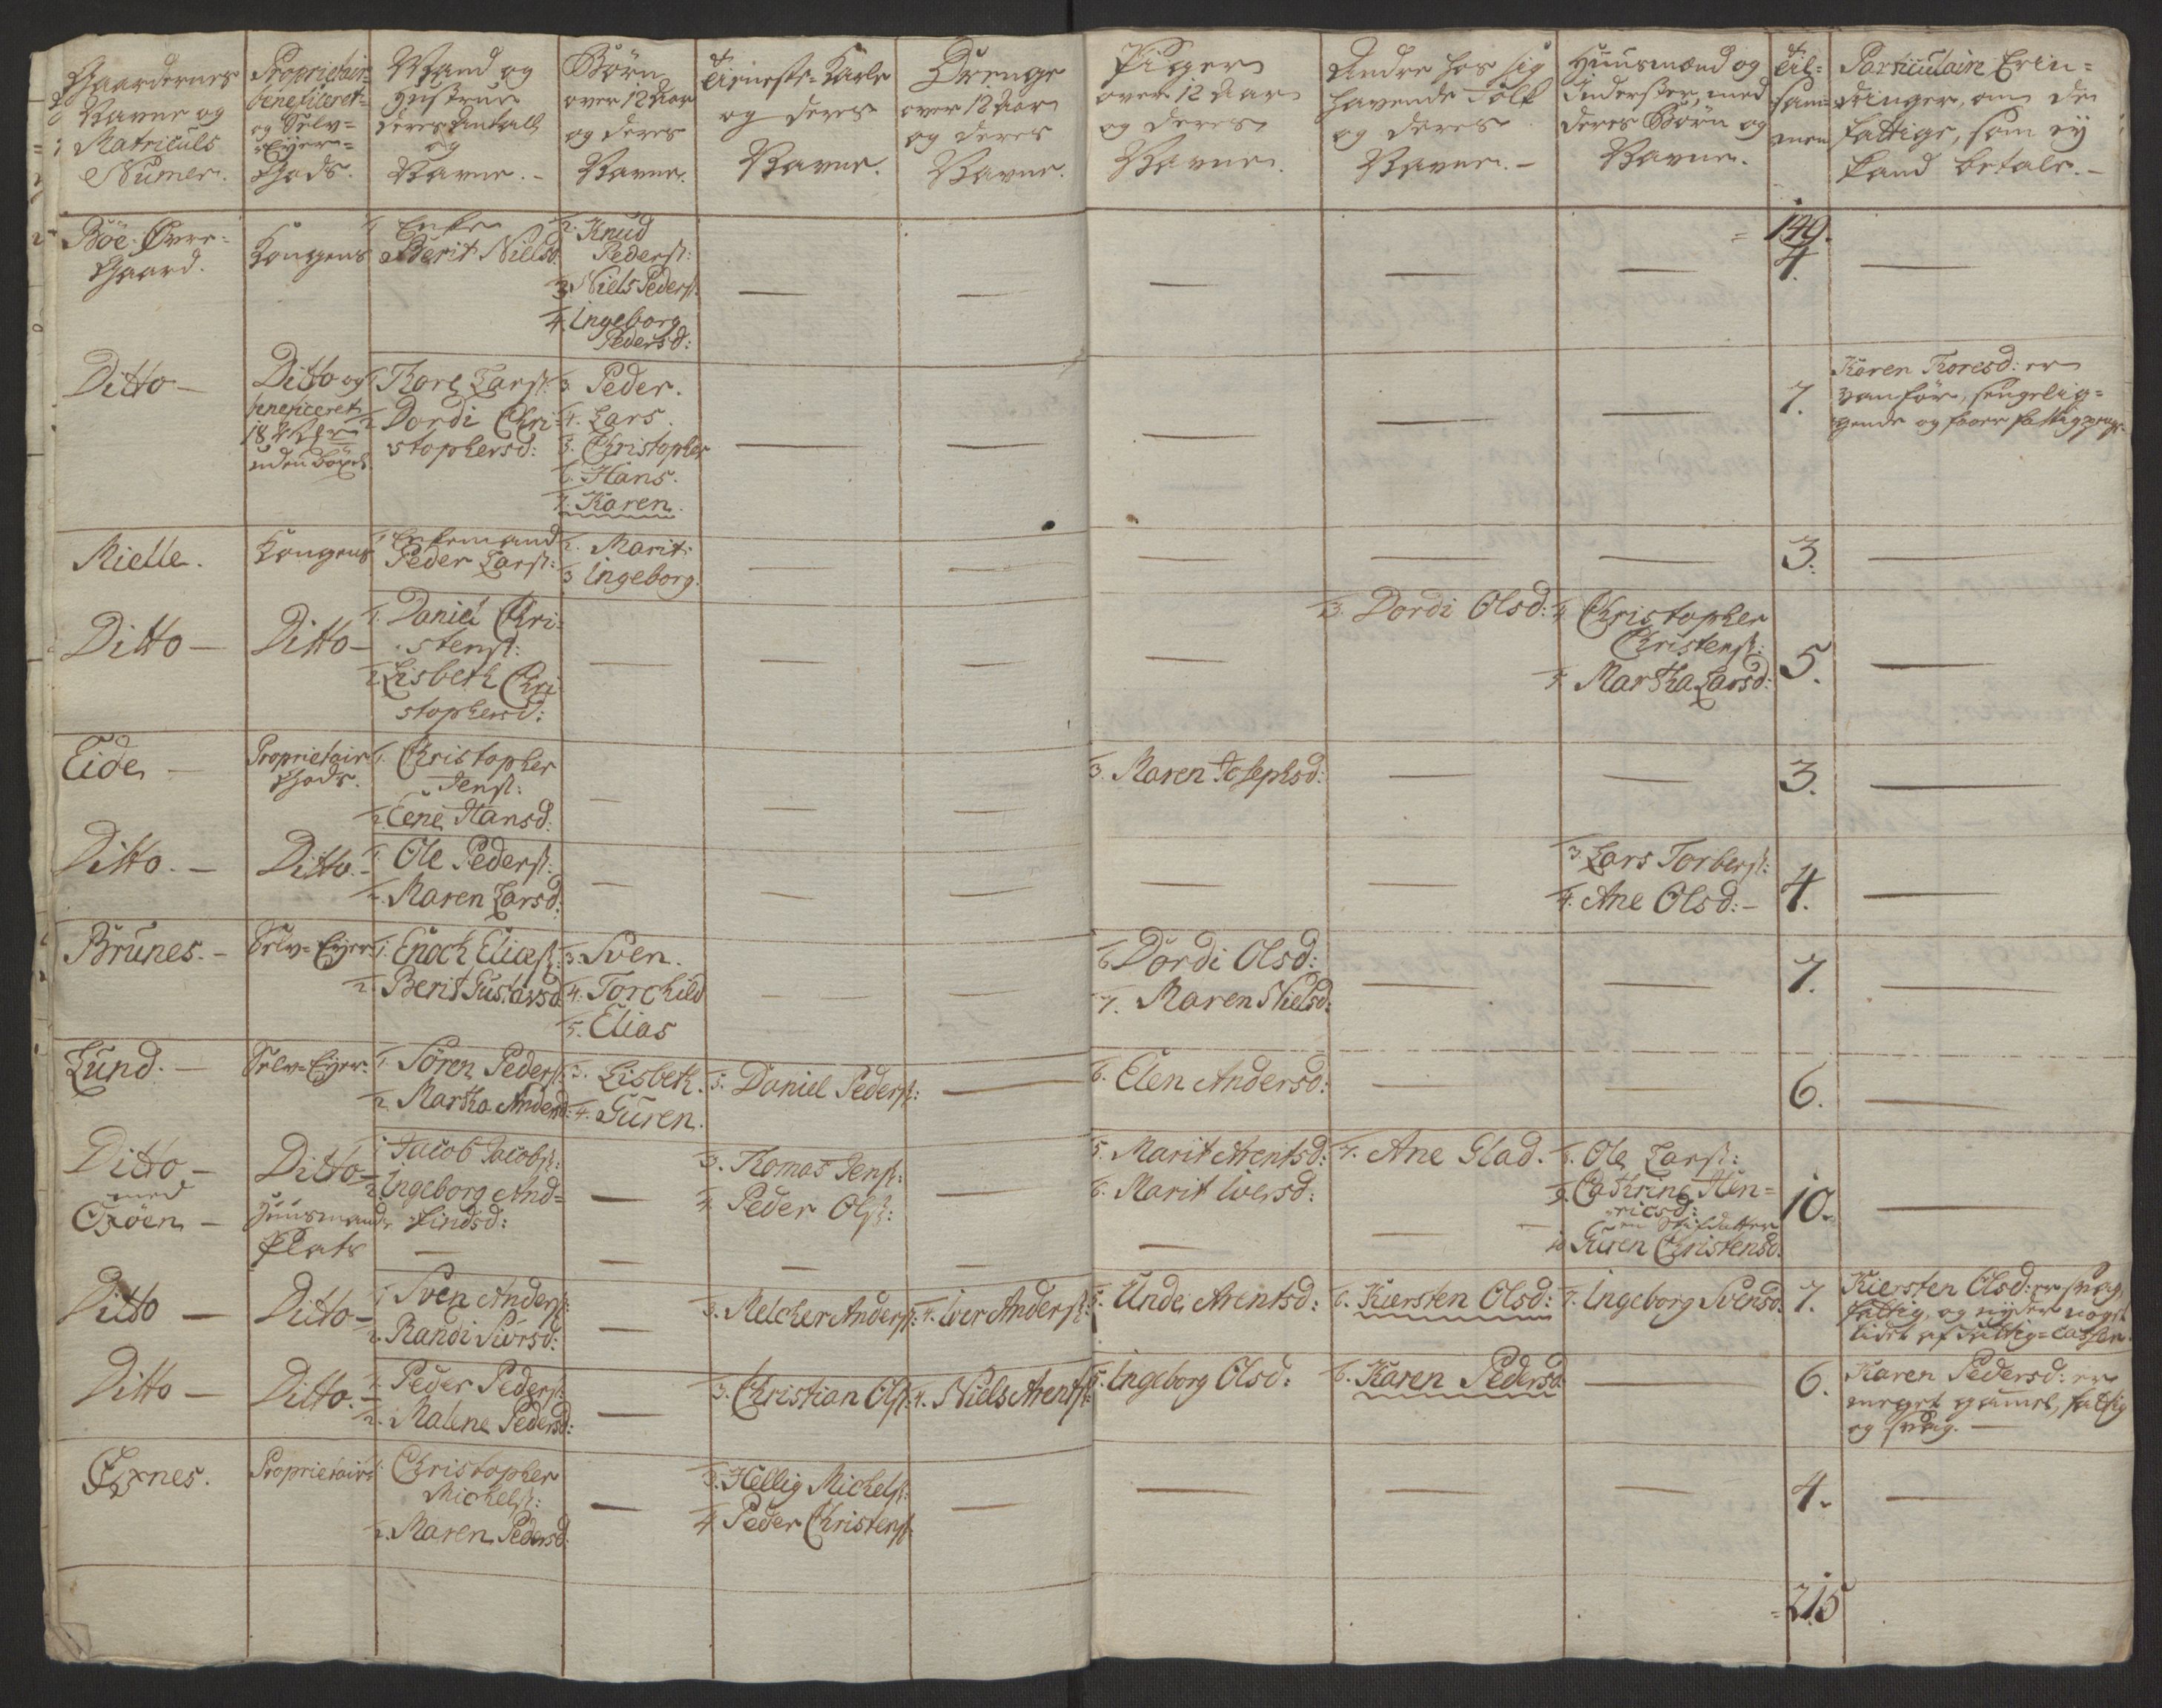 Gaardernes
Navne og
Matriculs
Numer.
Proprietair-
beneficeret-
og Selv-
Eyer-
Gods.
Mand og
Hustrue
deres Antall
og
Navne. -
Børn
over 12 Aar
og deres
Navne.
Tieneste-Karle
og deres
Navne.
Drenge
over 12 Aar
og deres
Navne.
Piger
over 12 Aar
og deres
Navne.
Andre hos sig
havende Folk
og deres
Navne. -
Huusmænd og
Inderster, med
deres Børn og
Navne.
Til-
sam-
men
Particulaire Erin-
dringer, om de
fattige, som ey
kand betale. -
149.
Böe Øvre-
Gaard.
Kongens
1. Enke
Berit Nielsd
2. Knud
Peders:
3. Niels Peders:
4. Ingeborg
Pedersd:
4.
Ditto -
Ditto og
beneficeret
uden böxel
1. Thore Lars:
2. Dordi Chri-
stophersd:
3. Peder.
4. Lars.
5. Christopher
6. Hans.
7. Karen.
7.
Karen Thoresd: er
vanför, sengelig-
gende og faaer fattigpenge.
Mielle.
Kongens
1. Enkemand
Peder Lars:
2. Marit
3 Ingeborg.
3.
Ditto -
Ditto -
1. Daniel Chri-
stens:
2. Lisbeth Chri-
stophersd:
3. Dordi Olsd:
4 Christopher
Christens:
5 Martha Larsd:
5.
Eide -
Proprietair
Gods.
1. Christopher
Jens:
2. Lene Hansd:
3. Maren Josephsd:
3.
Ditto. -
Ditto. -
1. Ole Peders:
2. Maren Larsd:
3. Lars Torbers:
4. Ane Olsd: -
4.
Brunes. -
Selv-Eyer
1. Enoch Elias:
2. Berit Gustavsd
3. Sven.
4. Torchild
5. Elias
6 Dordi Olsd:
7. Maren Nielsd:
7.
Lund. -
Selv-Eyer.
1. Sören Peders:
2. Martha Andersd:
3. Lisbeth.
4. Guren.
5. Daniel Peders:
6. Elen Andersd:
6.
Ditto -
med
Exöen -
Ditto -
Huusmands
Plats
1. Jacob Jacobs:
2. Ingeborg And-
Findsd:
3. Thomas Jens:
4. Peder Ols:
5. Marit Arentsd:
6. Marit Iversd:
7. Ane Glad.
8. Ole Lars:
9. Cathrine Hen-
ricsd:
en Stifdatter
10 Guren Christensd.
10.
Ditto -
Ditto -
1 Sven Anders:
2. Randi Siursd:
3. Melcher Anders:
4. Iver Anders:
5. Unde Arentsd:
6. Kiersten Olsd:
7. Ingeborg Svensd.
7.
Kiersten Olsd: er svag,
fattig, og nyder noget
lidet af Fattig-Cassen.
Ditto -
Ditto. -
1. Peder Peders:
2. Malene Pedersd:
3. Christian Ols:
4. Niels Arents:
5. Ingeborg Olsd:
6. Karen Pedersd.
6.
Karen Pedersd: er
meget gammel, fattig
og svag. -
Exnes.
Proprietair
1. Christopher
Michels:
2. Maren Pedersd.
3. Hellig Michels:
4 Peder Christens:
4.
215